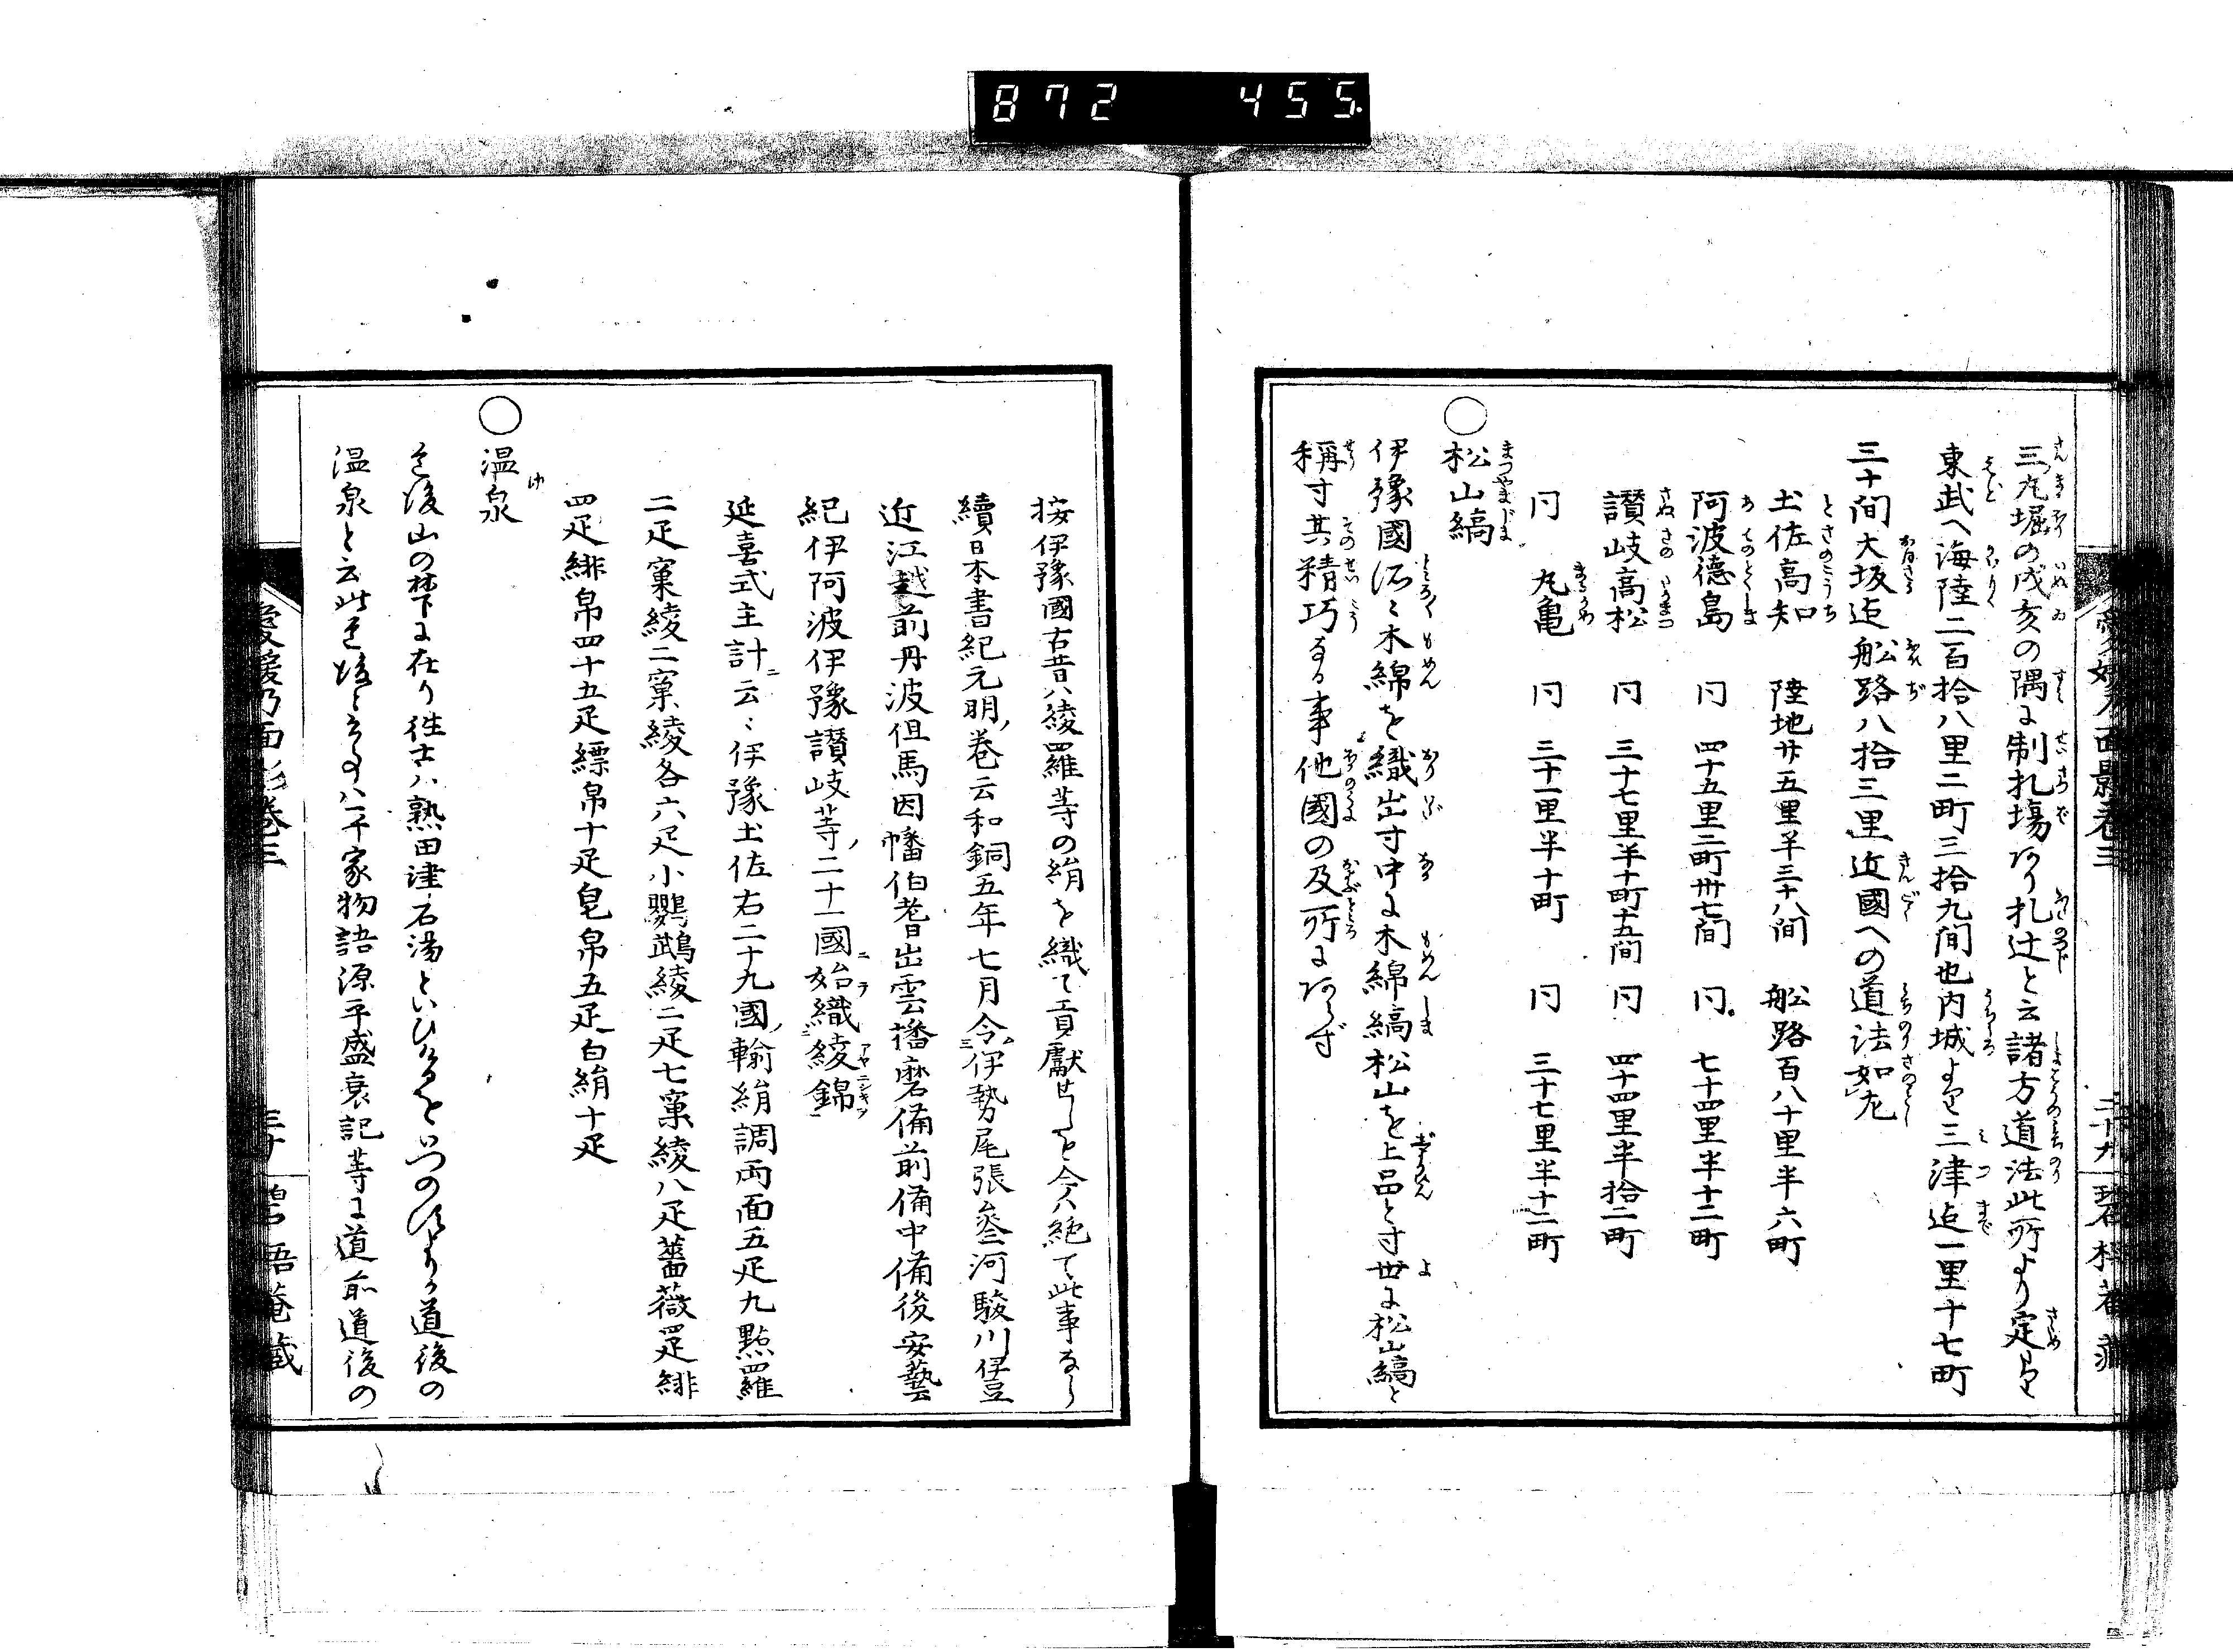 872 455
愛媛乃面影巻三 二十九 碧梧菴蔵
三ノ丸堀の戌亥の隅に制札場あり札辻と云諸方道法此所より定む
東武へ海陸二百拾八里二町三拾九間也内城より三津迠一里十七町
三十間大坂迠船路八拾三里近國への道法如左
土佐高知 陸地廿五里半三十八間 船路百八十里半六町
阿波德島 同 四十五里二町卅七間 同 七十四里半十二町
讃岐高松 同 三十七里半十町十五間 同 四十四里半拾二町
同 丸亀 同 三十一里半十町 同 三十七里半十二町
○松山縞
伊豫國所〻木綿を織出す中に木綿縞松山を上品とす世に松山縞と
稱す其精巧なる事他國の及所にあらず
按伊豫國古昔ハ綾羅等の絹を織て貢獻せしを今ハ絶て此事なし
續日本書紀元明ノ巻云和銅五年七月令伊勢尾張叅河駿川伊豆
近江越前丹波但馬因幡伯耆出雲播磨備前備中備後安藝
紀伊阿波伊豫讃岐等ノ二十一國始織綾錦
延喜式主計ニ云〻伊豫土佐右二十九國ノ輸絹調両面五疋九點羅
二疋窠綾二窠綾各六疋小鸚鵡綾二疋七窠綾八疋薔薇四疋緋
四疋緋帛四十五疋縹帛十疋皂帛五疋白絹十疋
○温泉
道後山の禁下に在り徃古ハ熟田津石湯といひけるをいつの頃よりか道後の
温泉と云此道後と云るハ平家物語源平盛衰記等に道前道後の
愛媛乃面影巻三 三十 碧梧菴蔵